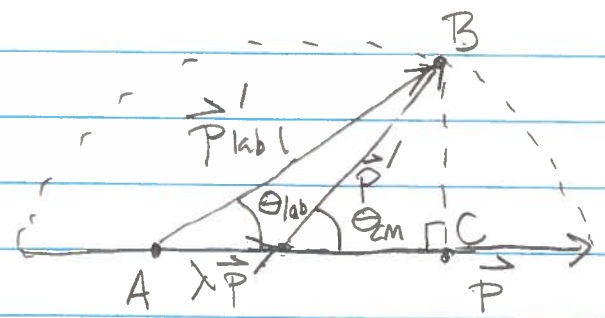 B
p⃗'lab 1
p⃗'
θlab
θcm
C
A
λp⃗
p⃗